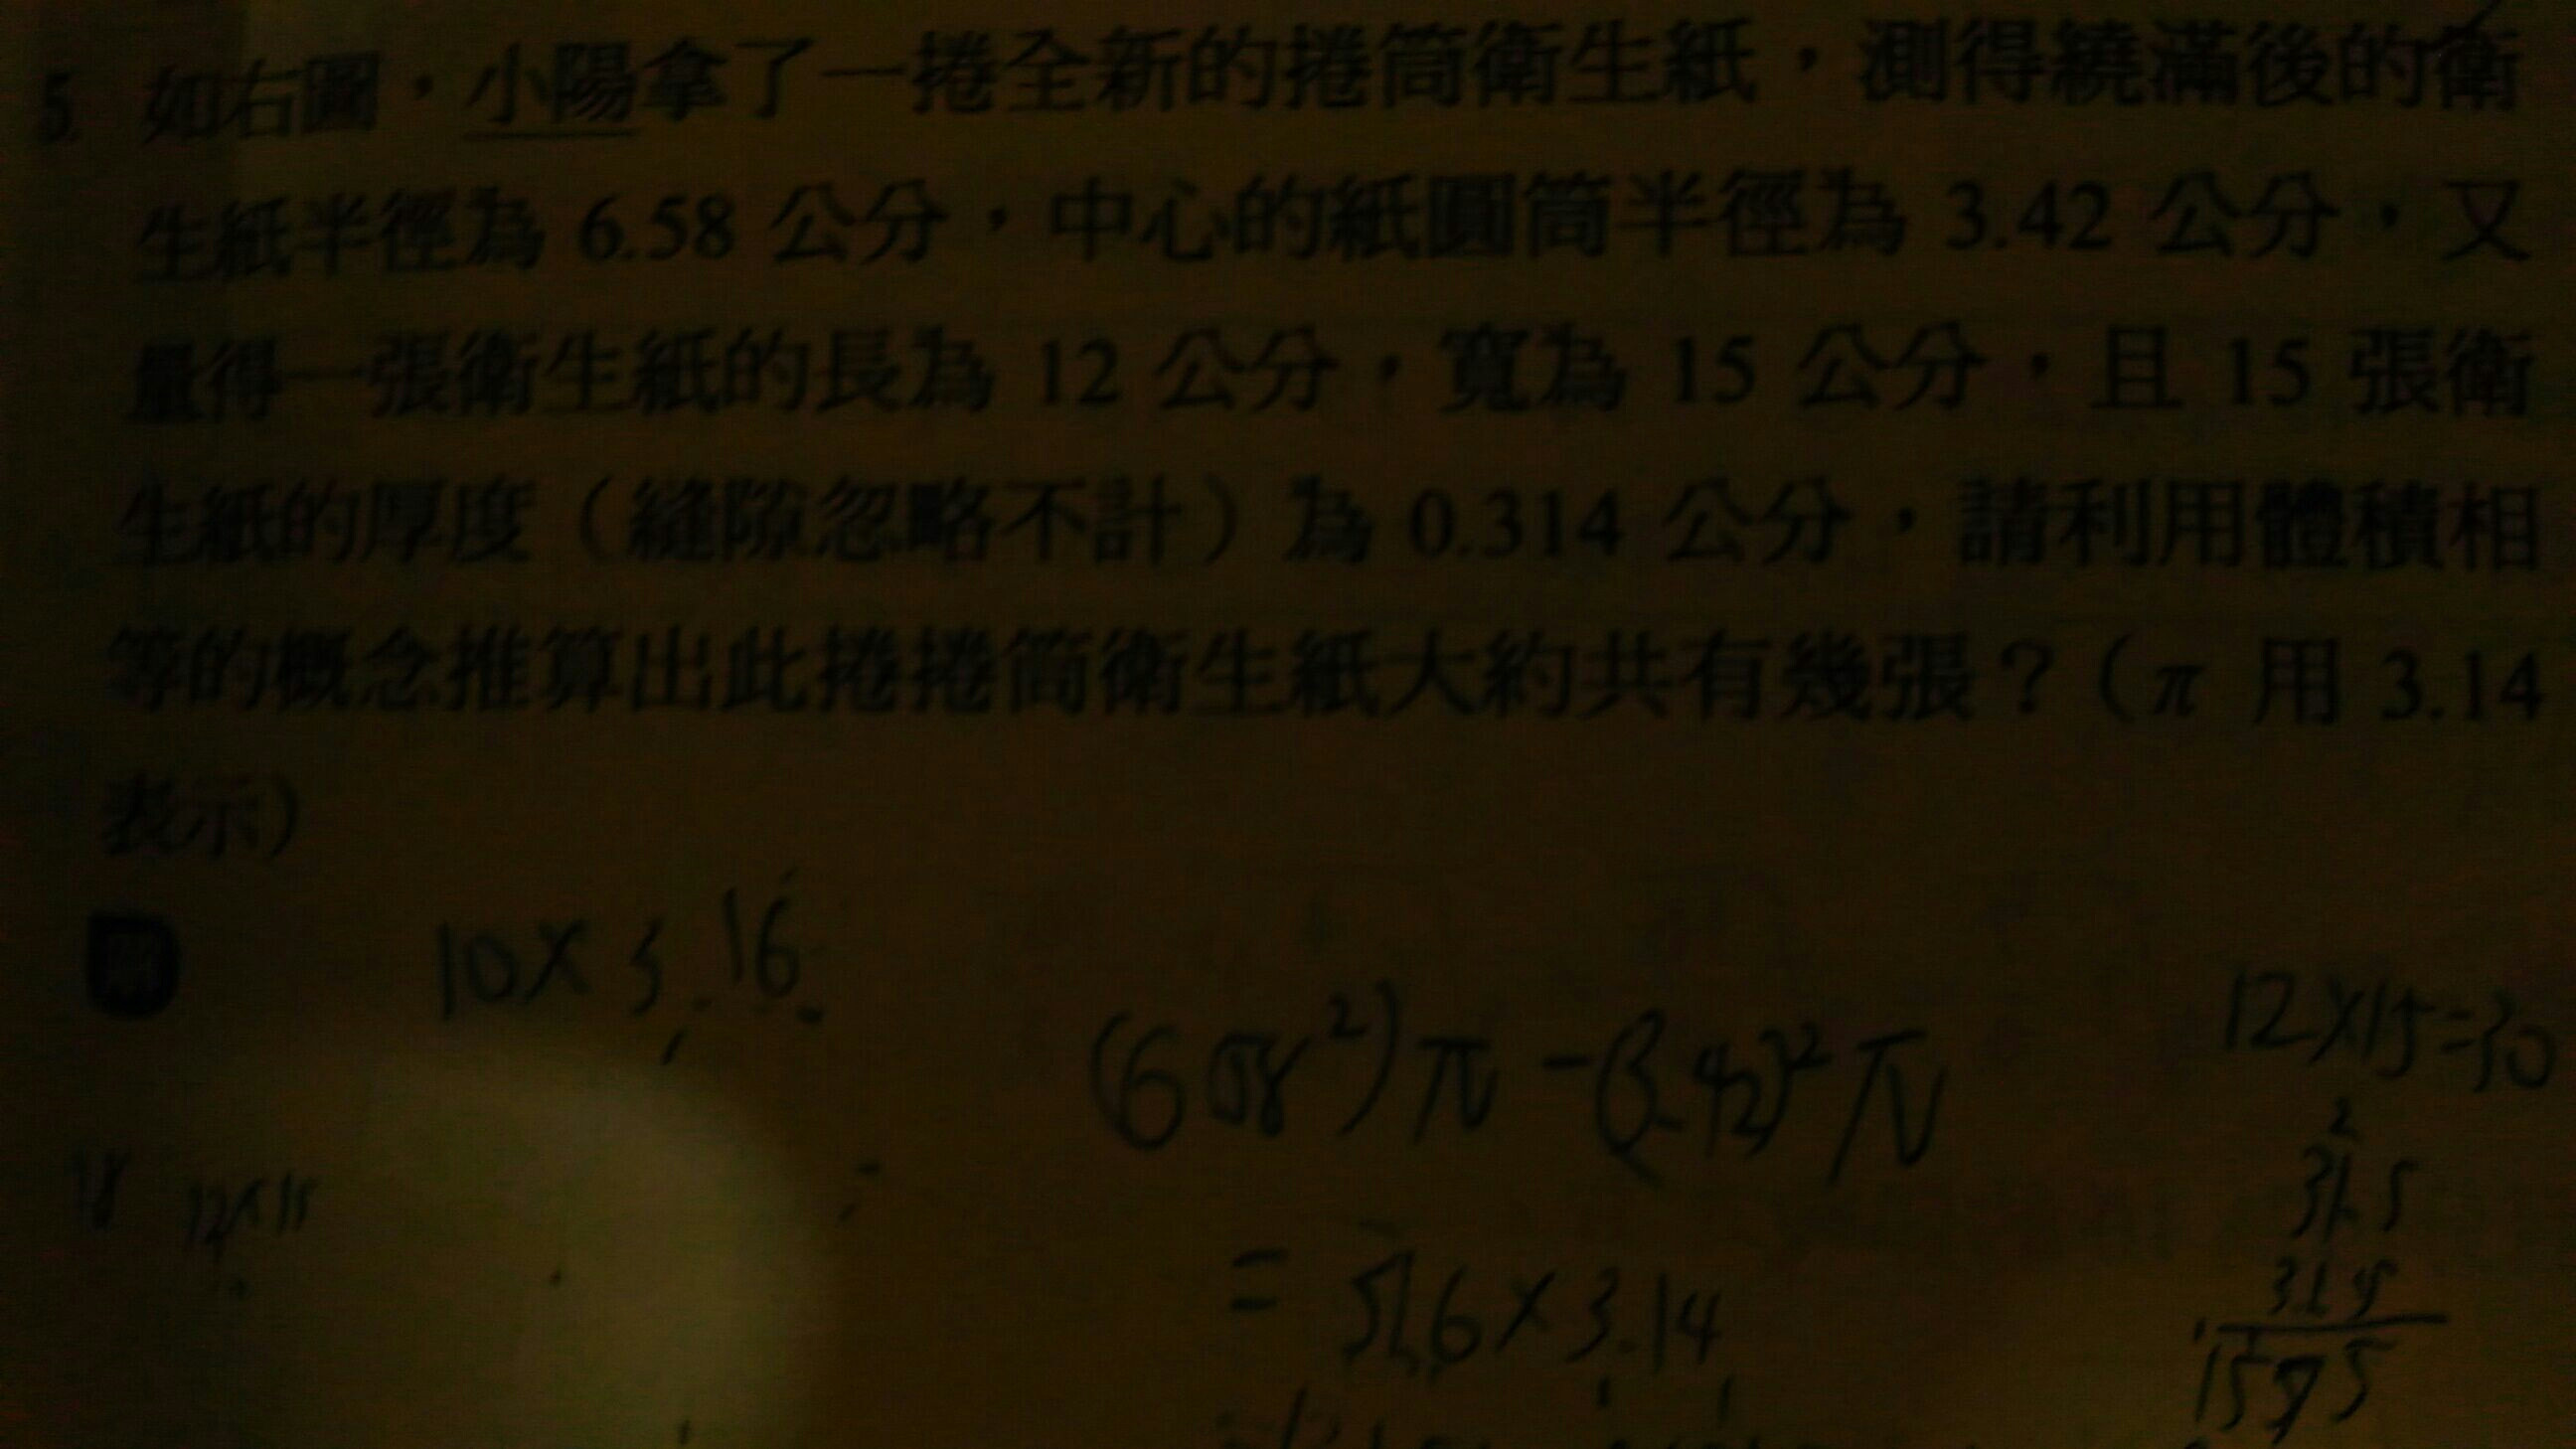 5. 如右圖，小陽拿了一捲全新的捲筒衛生紙，測得繞滿後的衛
生紙半徑為 6.58 公分，中心的紙圓筒半徑為 3.42 公分，又
量得一張衛生紙的長為 12 公分，寬為 15 公分，且 15 張衛
生紙的厚度（縫隙忽略不計）為 0.314 公分，請利用體積相
等的概念推算出此捲捲筒衛生紙大約共有幾張？（π 用 3.14
表示）
10×3.16
(6.58²)π-(3.42)²π
12×15=30
12×15
=
×3.14